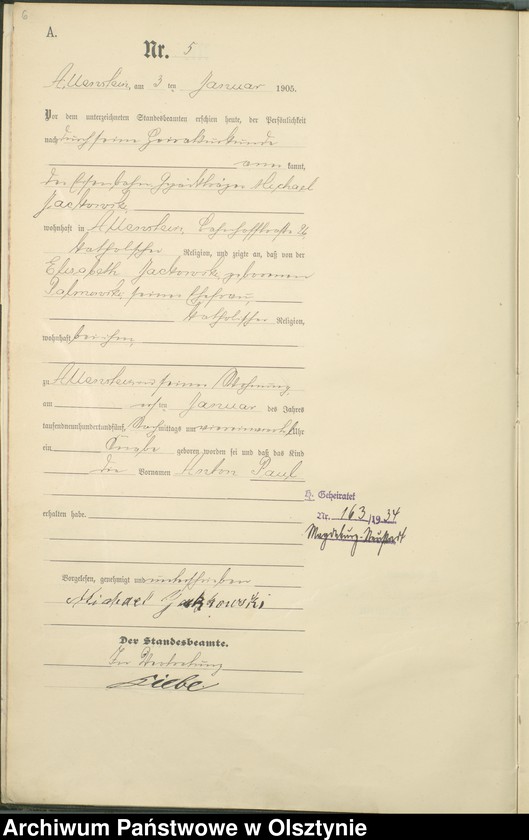 6
A.
Nr. 5
Allenstein, am 3 ten Januar 1905.
Vor dem unterzeichneten Standesbeamten erschien heute, der Persönlichkeit
nach durch seine Heiratsurkunde
aner kannt,
der Eisenbahn Michael
Jackowski,
wohnhaft in Allenstein, Bahnhofstraße
katholischer Religion, und zeigte an, daß von der
Elisabeth Jackowski geborenen
Palmowski, seiner Ehefrau,
katholischer Religion,
wohnhaft bei ihm,
zu Allenstein in seiner Wohnung
am ersten Januar des Jahres
tausendneunhundertundfünf, Nachmittags um Uhr
ein Knabe geboren worden sei und daß das Kind
die Vornamen Paul
erhalten habe.
H. Geheiratet
Nr. 163/1934
Magdeburg-Neustadt
Vorgelesen, genehmigt und unterschrieben
Michael Jackowski
Der Standesbeamte.
In Vertretung
Liebe
Archiwum Państwowe w Olsztynie